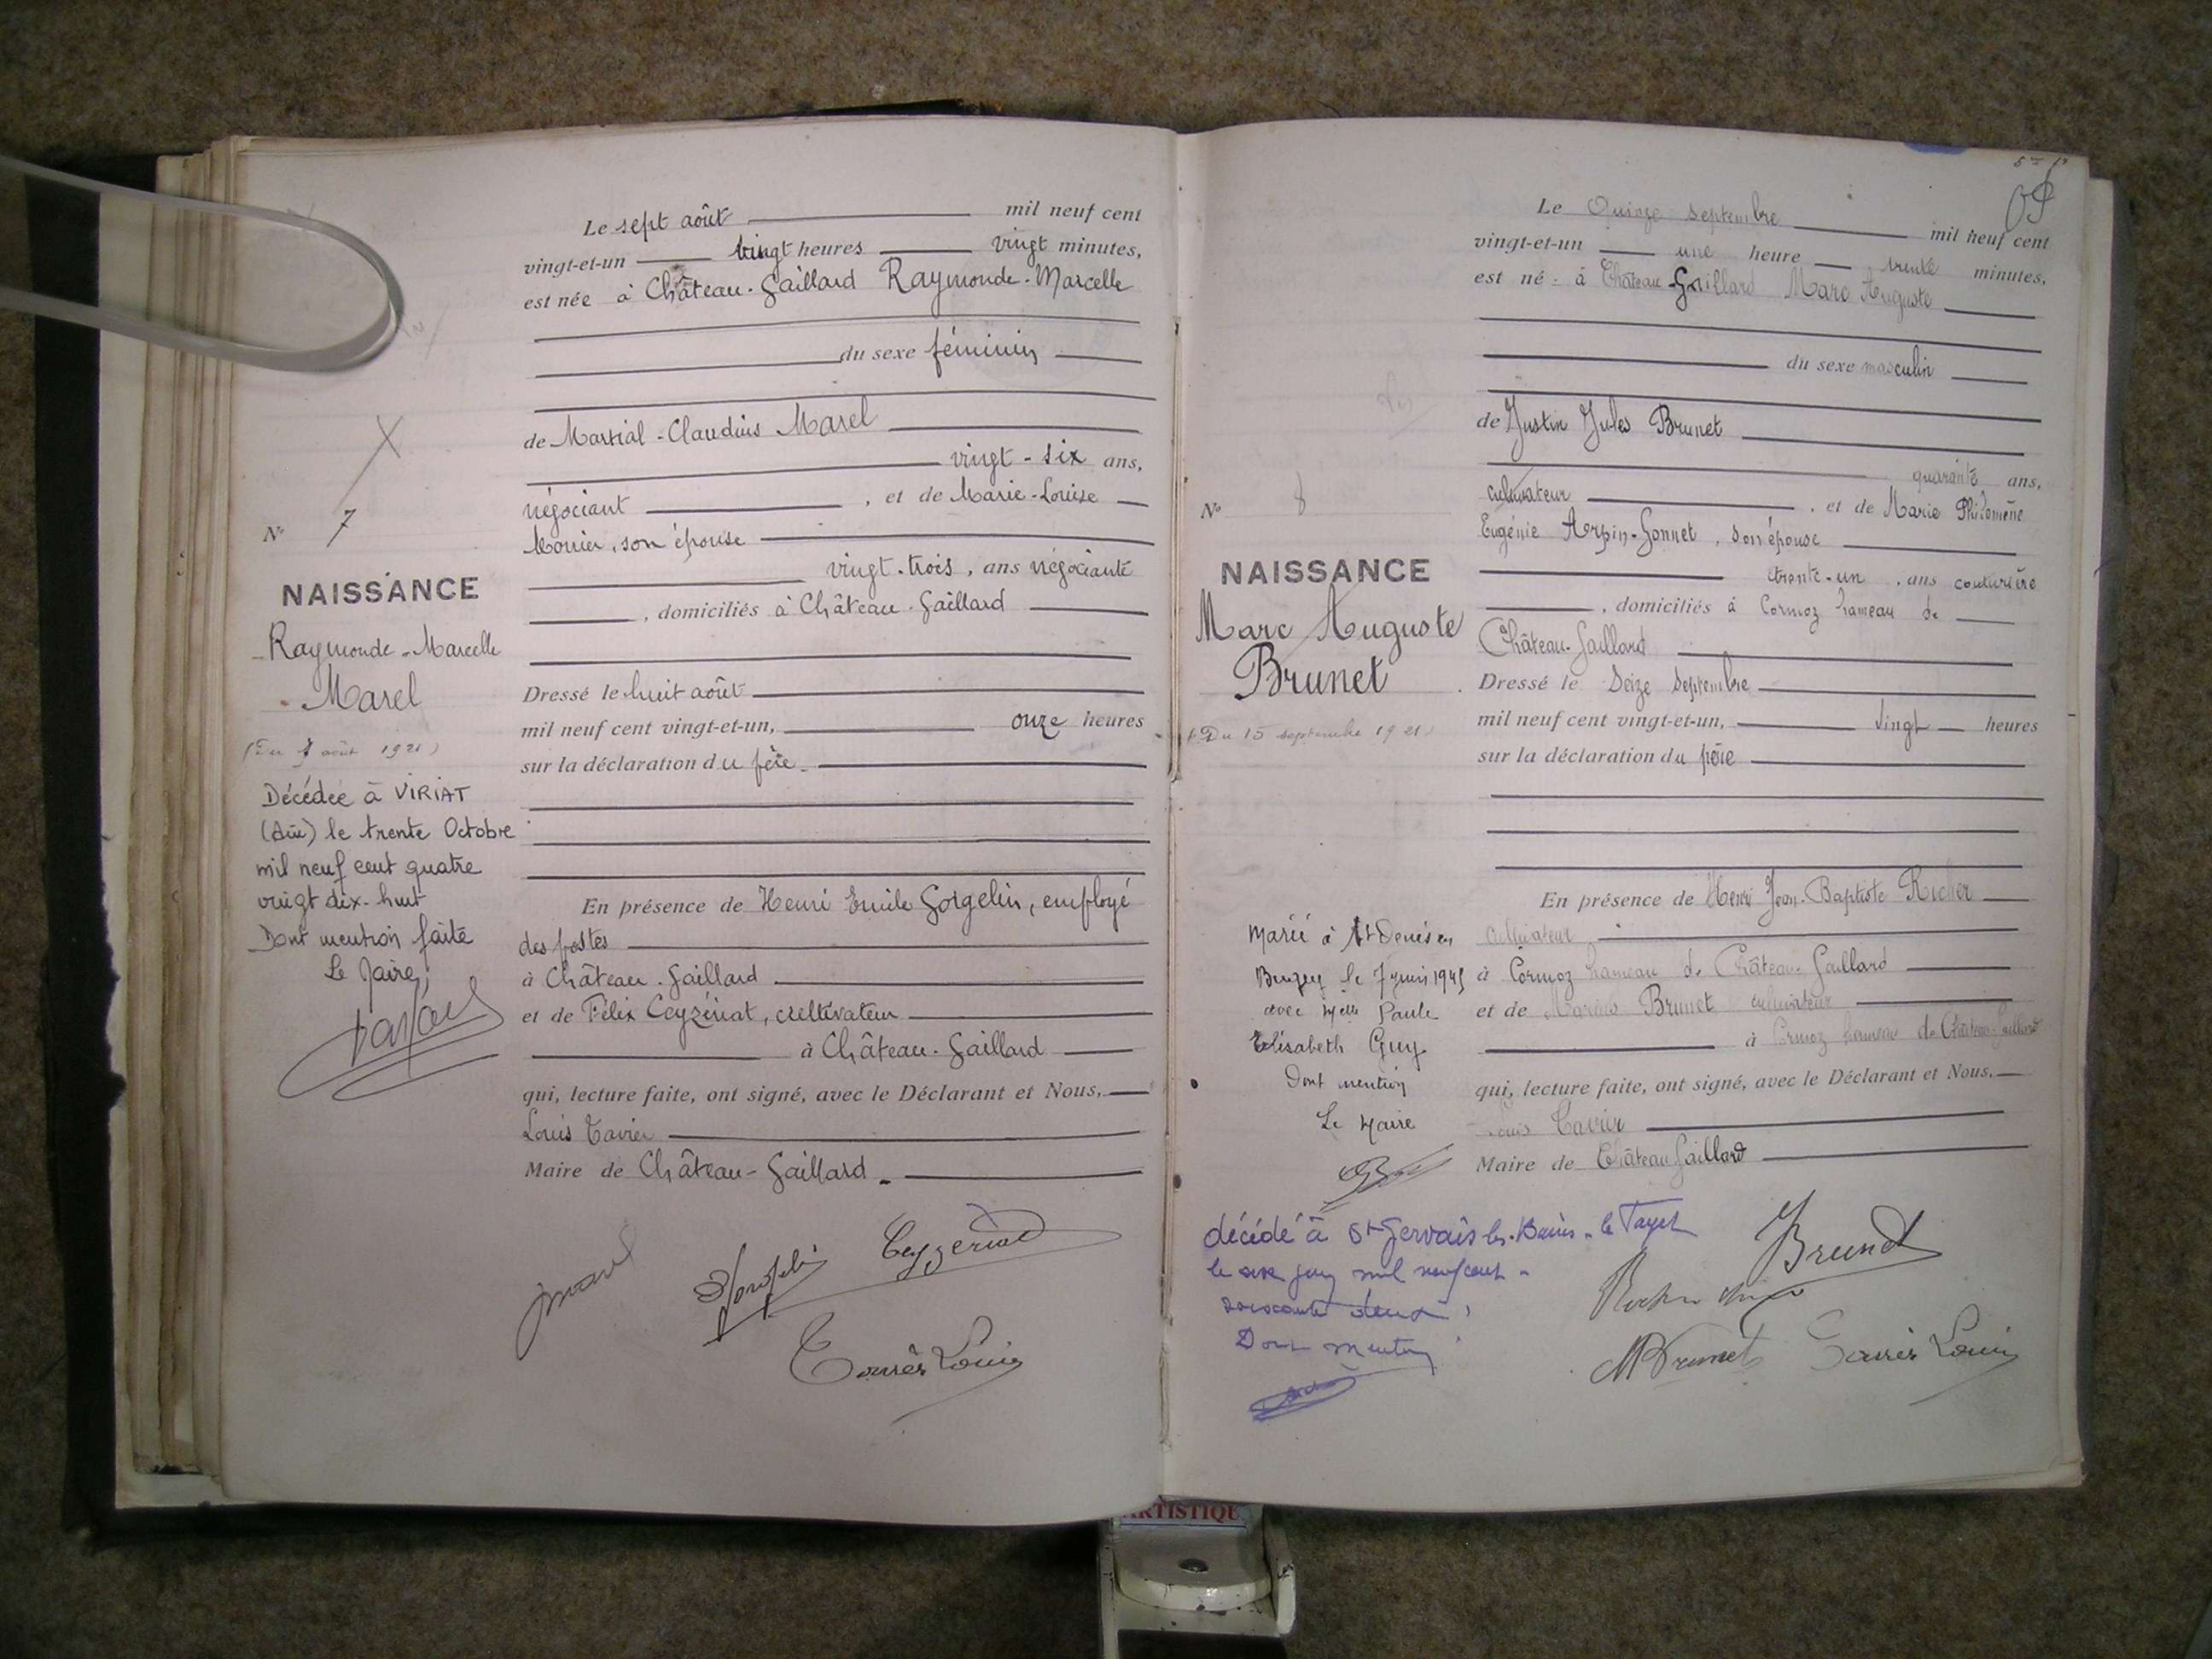 N° 7
NAISSANCE
Raymonde-Marcelle
Marel
(Du 7 août 1921)
Décédée à VIRIAT
(Ain) le trente Octobre
mil neuf cent quatre
vingt dix-huit
Dont mention faite
Le Maire,
Le sept août mil neuf cent
vingt-et-un vingt heures vingt minutes,
est née à Château-Gaillard Raymonde-Marcelle
du sexe féminin
de Martial-Claudius Marel
vingt-six ans,
négociant, et de Marie-Louise
son épouse
vingt-trois, ans négociante
, domiciliés à Château-Gaillard
Dressé le huit août
mil neuf cent vingt-et-un, onze heures
sur la déclaration du père
En présence de Henri Emile Gorgelin, employé
des postes
à Château-Gaillard
et de Félix Ceyzériat, cultivateur
à Château-Gaillard
qui, lecture faite, ont signé, avec le Déclarant et Nous,
Louis Tavier
Maire de Château-Gaillard
Marel
Ceyzeriat
Louis
N° 8
NAISSANCE
Marc Auguste
Brunet
(Du 15 septembre 1921)
Marié à St Denis en
Bugey le 7 juin 1945
avec Melle Paule
Elisabeth Guy
Dont mention
Le Maire
décédé à St-Gervais-les-Bains-le Fayet
le mil neuf cent
soixante deux
Dont mention
Le Quinze septembre mil neuf cent
vingt-et-un une heure trente minutes,
est né à Château-Gaillard Marc Auguste
du sexe masculin
de Justin Jules Brunet
quarante ans,
cultivateur, et de Marie Philomène
Eugénie Arpin-Gonnet, son épouse
trente-un, ans couturière
, domiciliés à Cormoz hameau de
Château-Gaillard
Dressé le Seize Septembre
mil neuf cent vingt-et-un, vingt heures
sur la déclaration du père
En présence de Henri Jean-Baptiste
cultivateur
à Cormoz hameau de Château-Gaillard
et de Marius Brunet cultivateur
à Cormoz hameau de Château-Gaillard
qui, lecture faite, ont signé, avec le Déclarant et Nous.
Louis Tavier
Maire de Château Gaillard
Brunet
M Brunet
Louis
ARTISTIQU